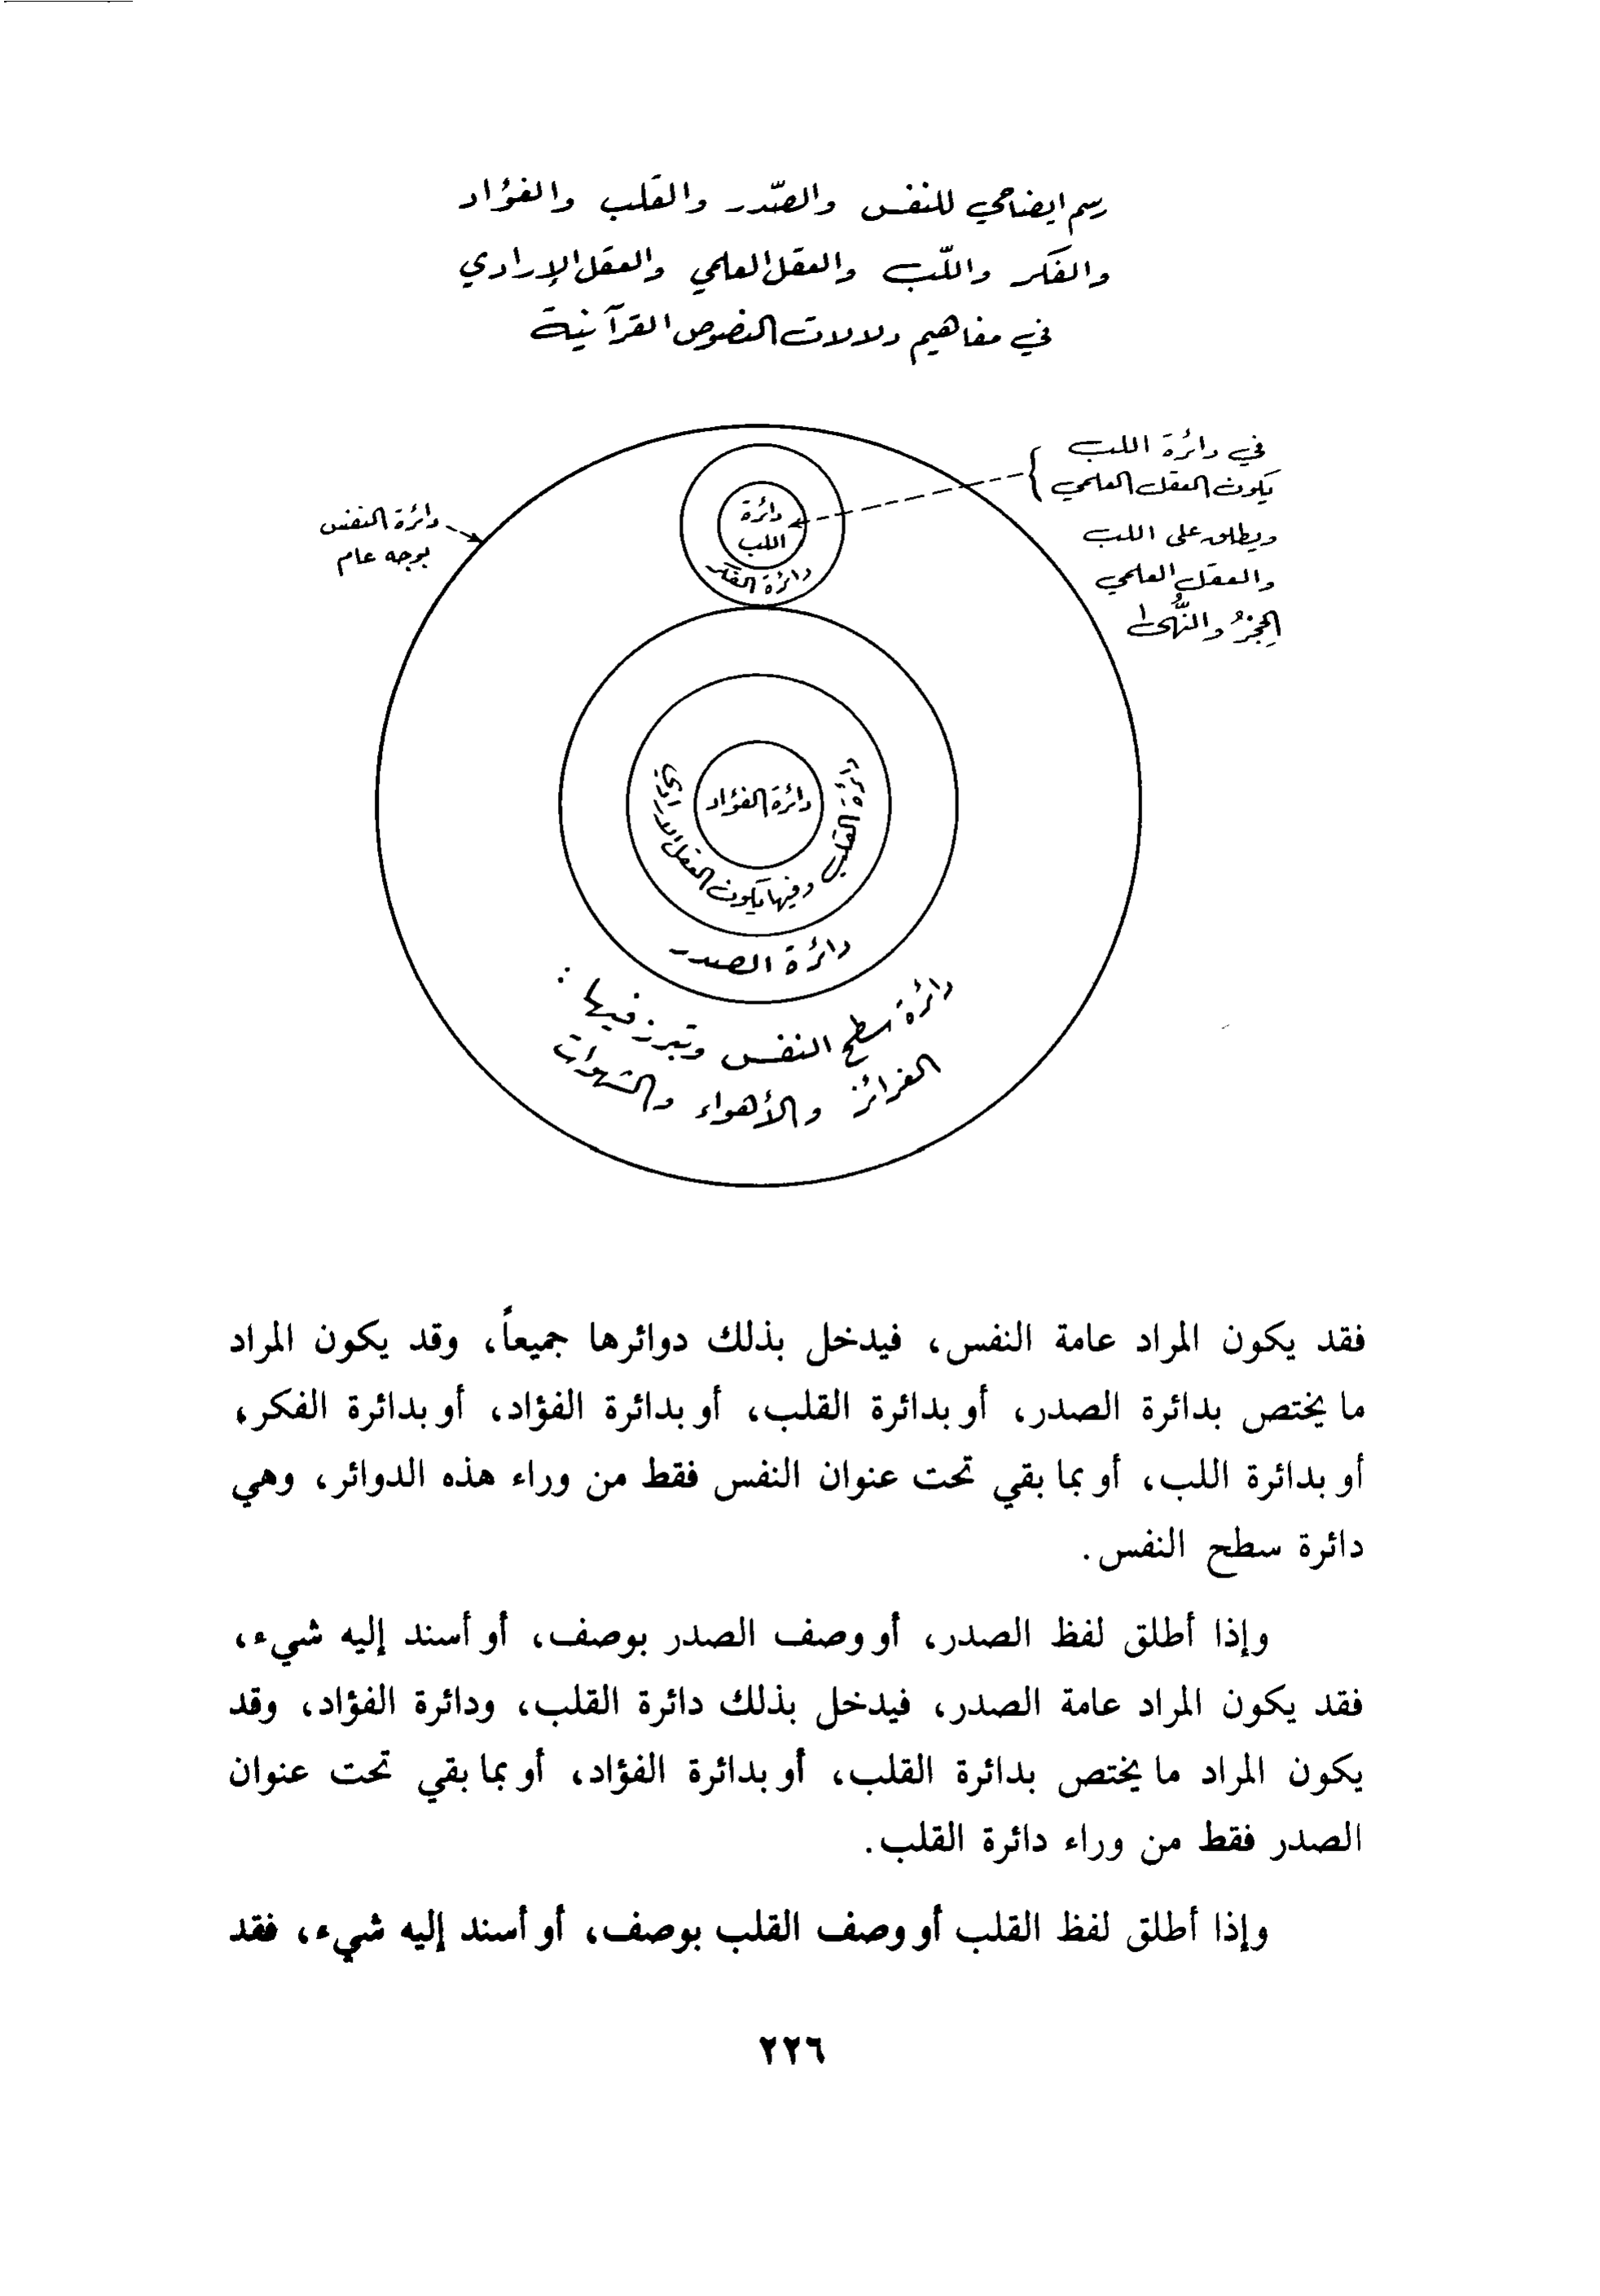 رسم ايضاحي للنفس والصّدر والقلب والفؤاد
والفكر واللّب والعقل العلمي والعقل الإرادي
في مفاهيم دلالات النصوص القرآنية
في دائرة اللب
يكون العقل العلمي
ويطلق على اللب
والعقل العلمي
الحِجْرُ والنُّهى
دائرة النفس
بوجه عام
دائرة
اللب
دائرة الفكر
دائرة الفؤاد
دائرة القلب وفيها يكون العقل الارادي
دائرة الصدر
دائرة سطح النفس وتبرز فيها :
الغرائز والأهواء والشهوات
فقد يكون المراد عامة النفس، فيدخل بذلك دوائرها جميعاً، وقد يكون المراد
ما يختص بدائرة الصدر، أو بدائرة القلب، أو بدائرة الفؤاد، أو بدائرة الفكر،
أو بدائرة اللب، أو بما بقي تحت عنوان النفس فقط من وراء هذه الدوائر، وهي
دائرة سطح النفس.
وإذا أطلق لفظ الصدر، أو وصف الصدر بوصف، أو أسند إليه شيء،
فقد يكون المراد عامة الصدر، فيدخل بذلك دائرة القلب، ودائرة الفؤاد، وقد
يكون المراد ما يختص بدائرة القلب، أو بدائرة الفؤاد، أو بما بقي تحت عنوان
الصدر فقط من وراء دائرة القلب.
وإذا أطلق لفظ القلب أو وصف القلب بوصف، أو أسند إليه شيء، فقد
٢٢٦